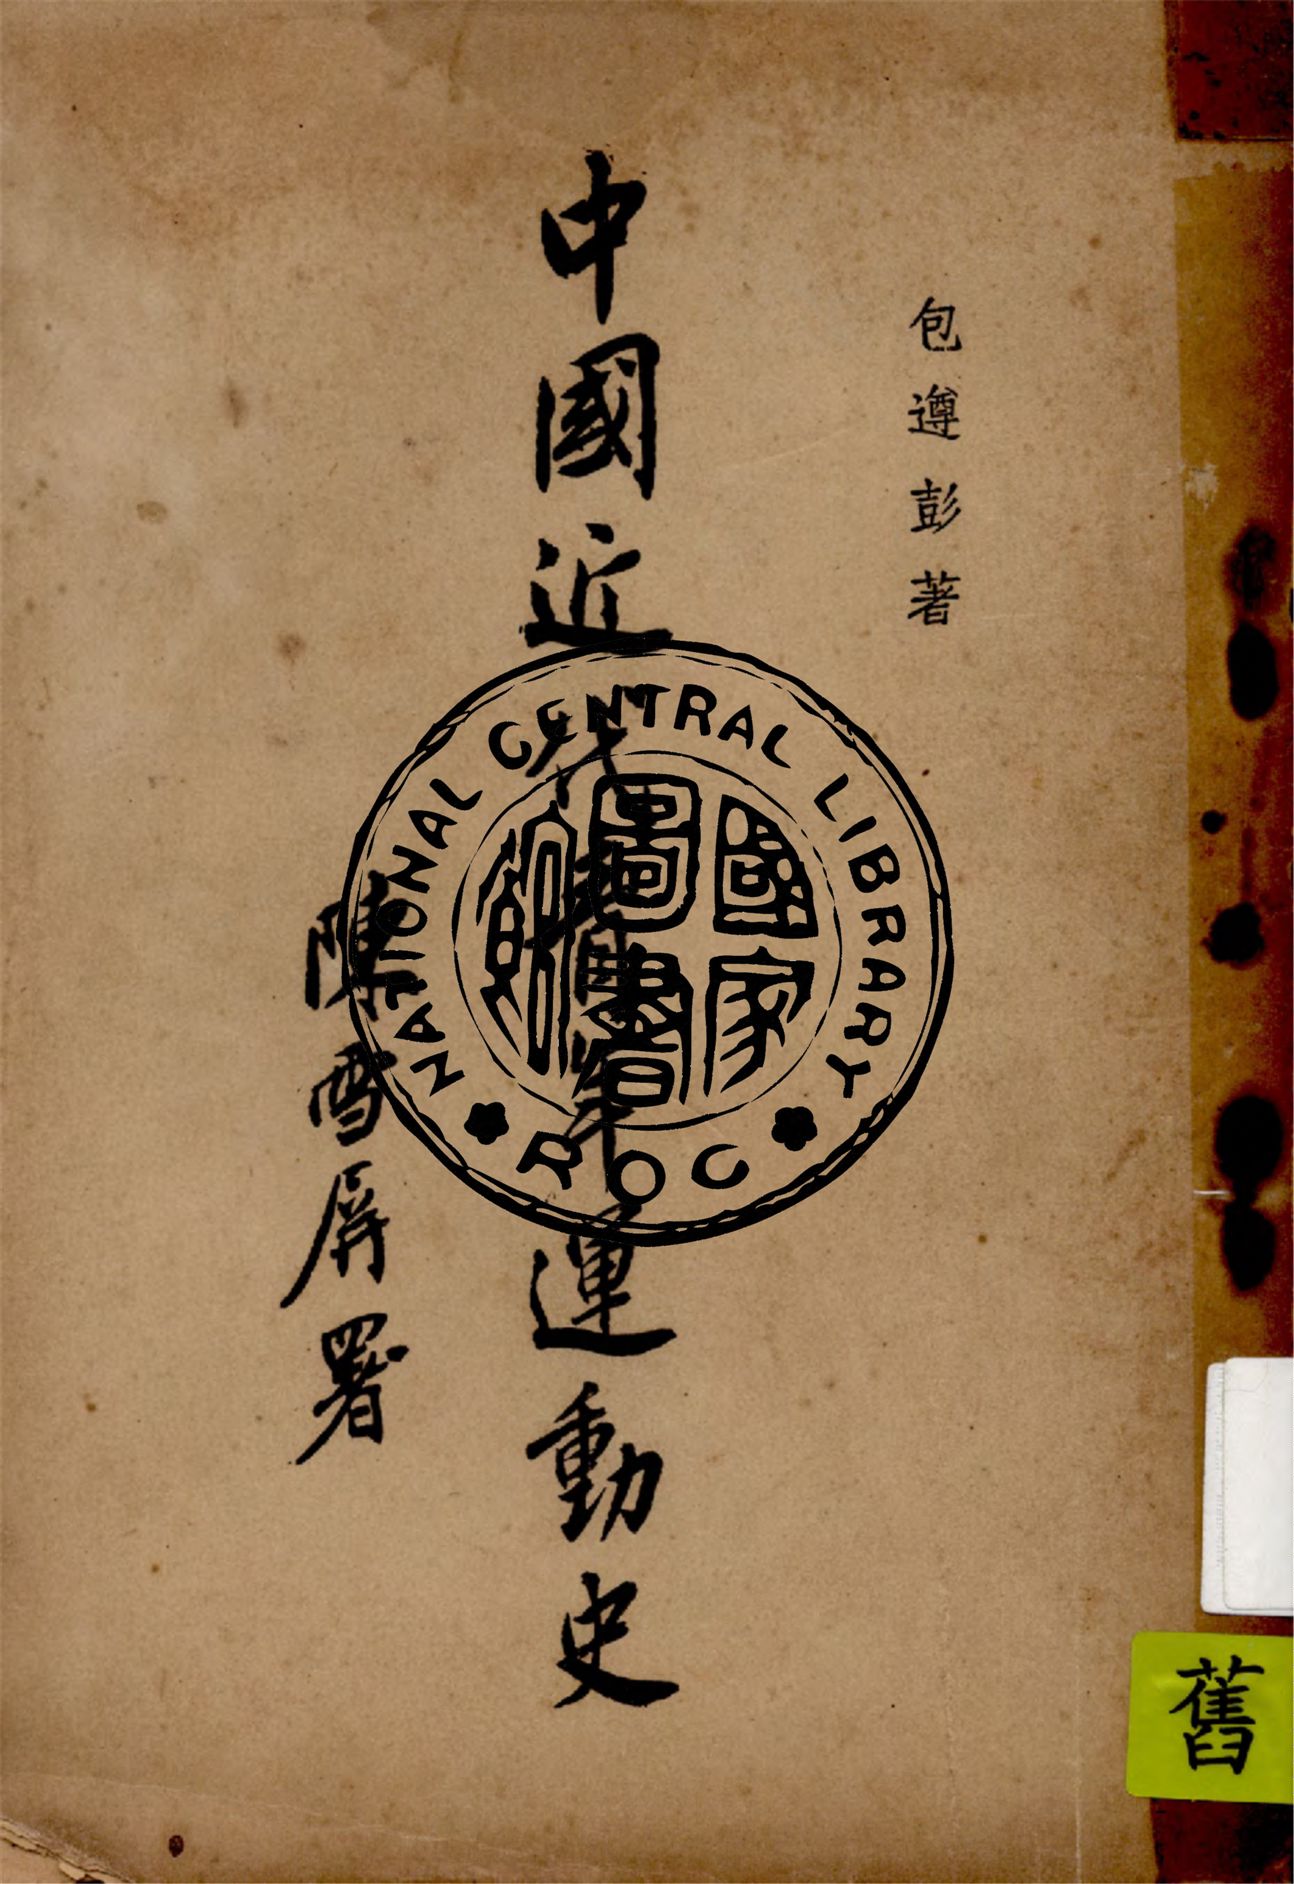 包遵彭著
中國近代青年運動史
陳雪屏署
NATIONAL CENTRAL LIBRARY
國家圖書館
ROC
舊